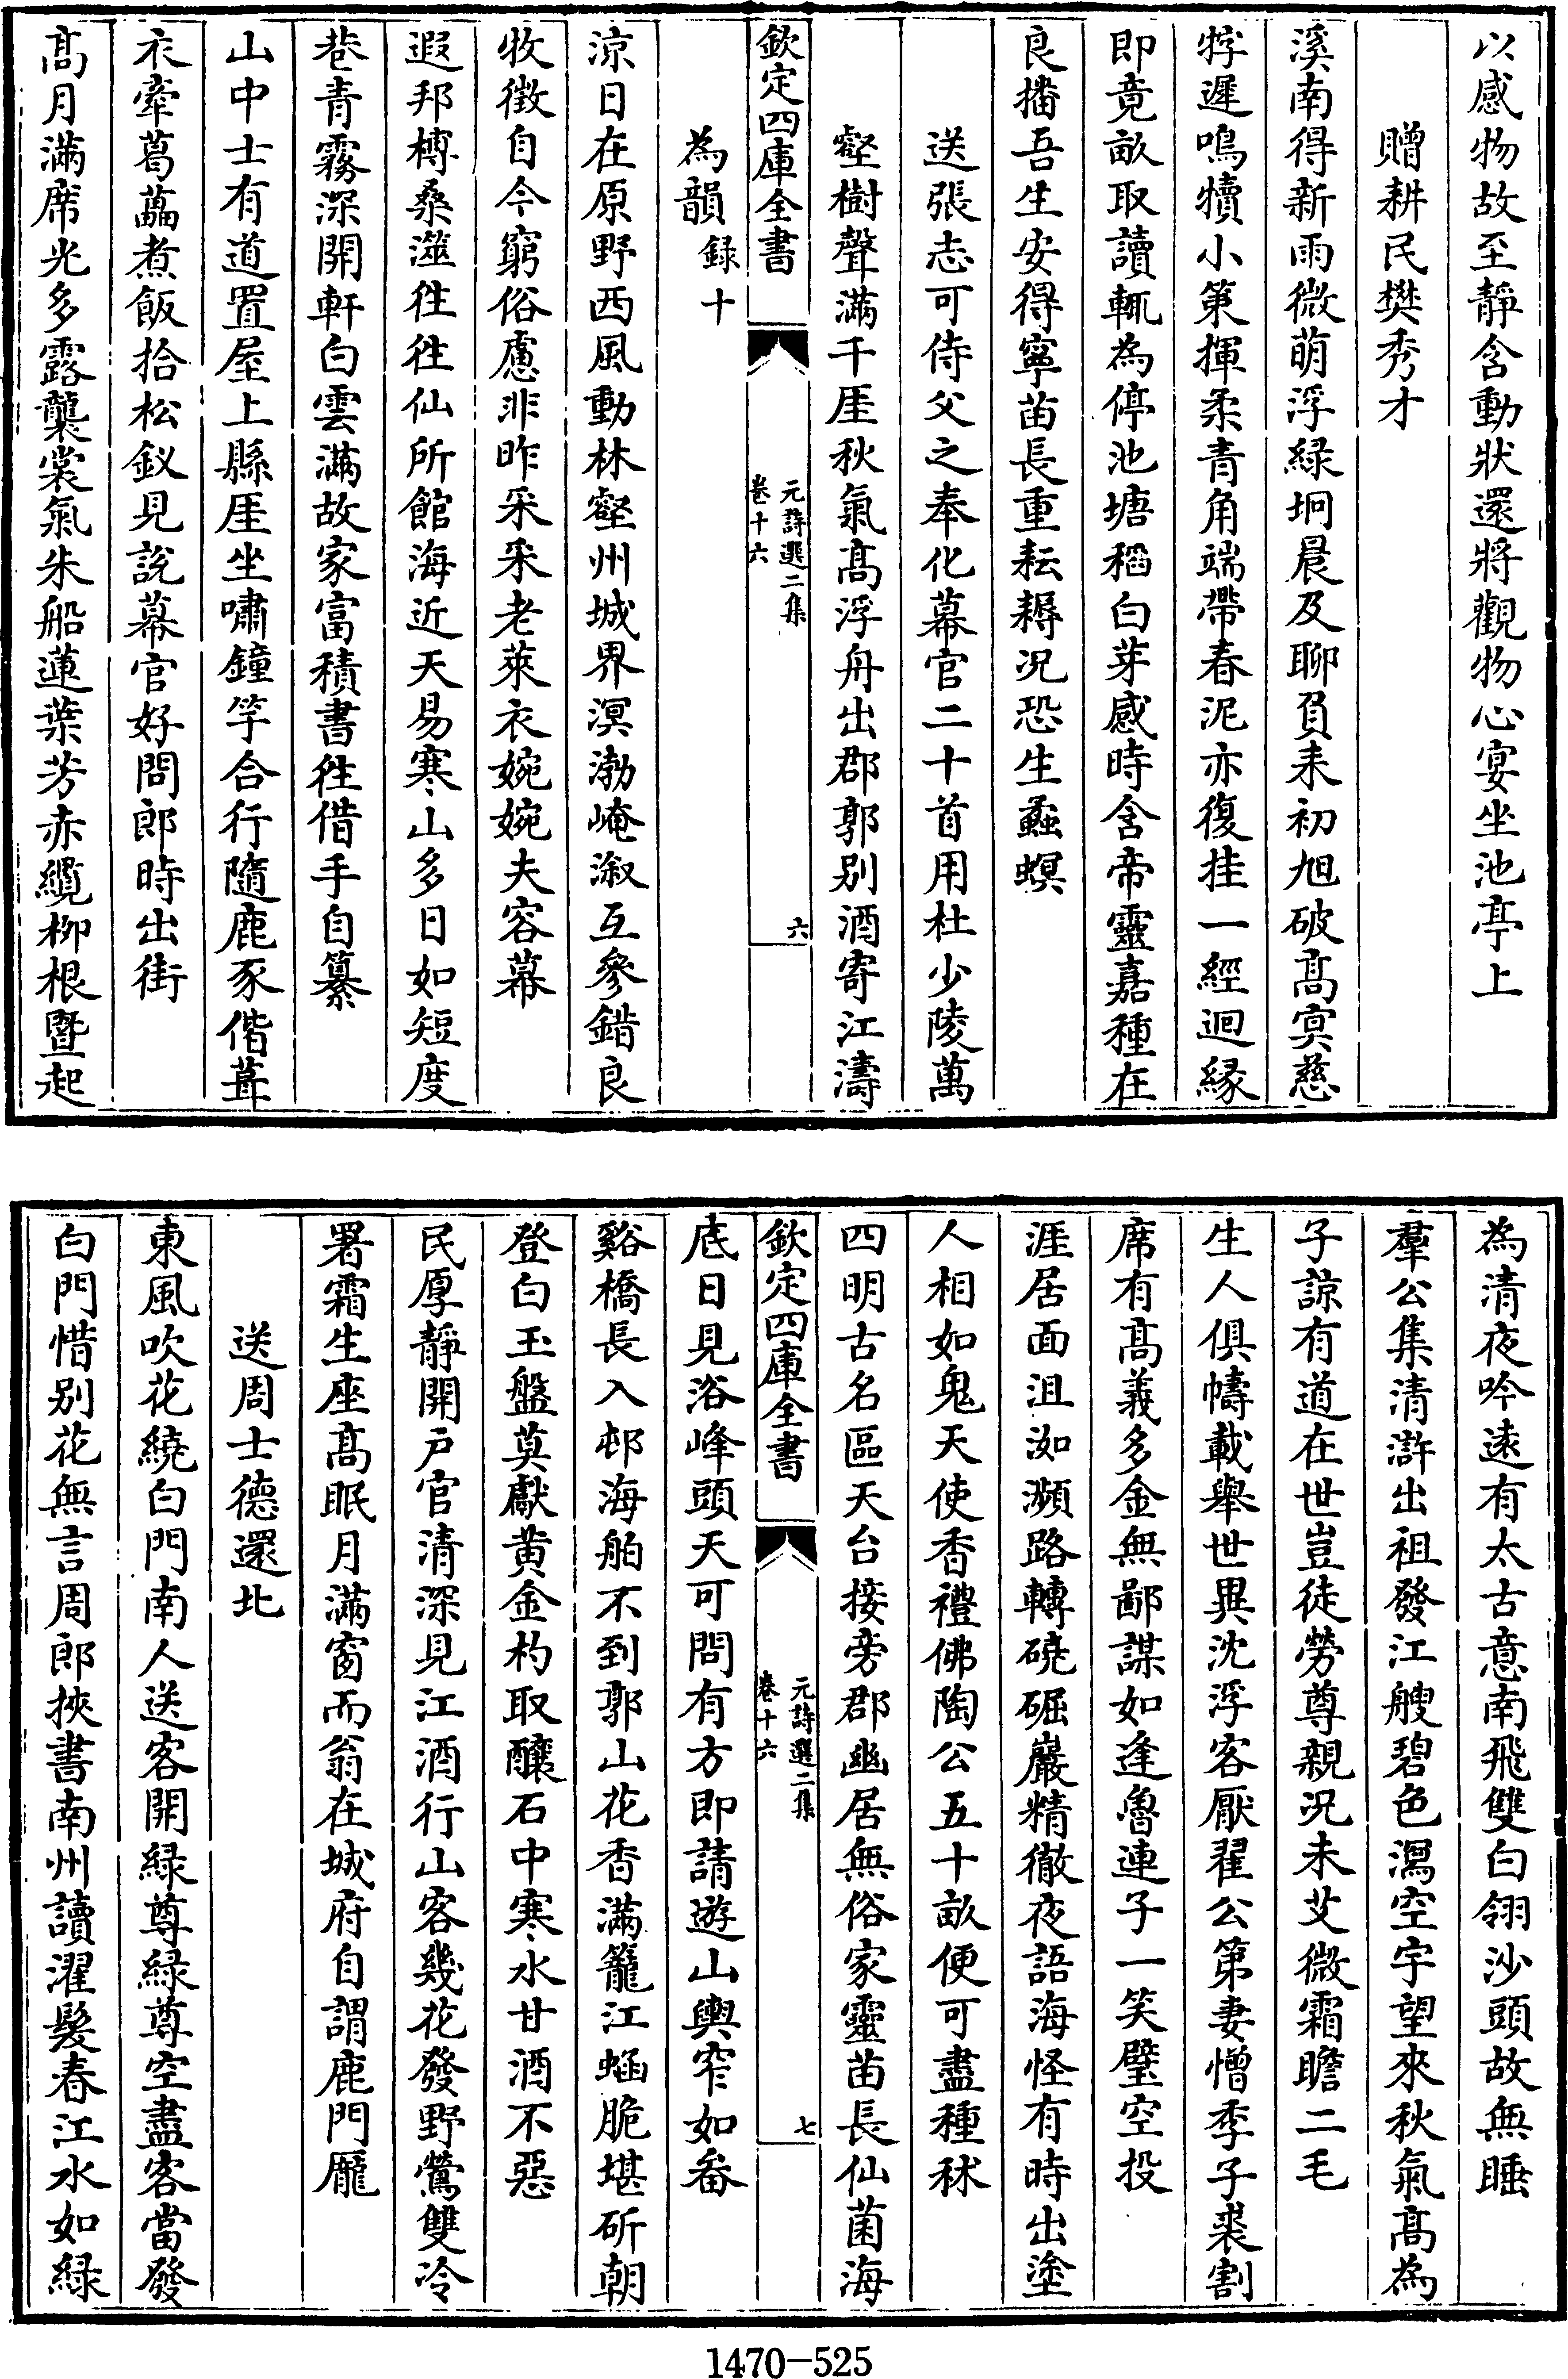 以感物故至靜含動狀還將觀物心宴坐池亭上
贈耕民樊秀才
溪南得新雨微萌浮綠坰晨及聊負耒初旭破髙㝠慈
牸遲鳴犢小第揮柔青角端帶春泥亦復挂一經迴緣
即竟畝取讀輒為停池塘稻白芽感時含帝靈嘉種在
良播吾生安得寧苗長重耘耨况恐生蟊螟
送張志可侍父之奉化幕官二十首用杜少陵萬
壑樹聲滿千厓秋氣髙浮舟出郡郭别酒寄江濤
欽定四庫全書
元詩選二集
卷十六
六
為韻録十
涼日在原野西風動林壑州城界溟渤崦溆互參錯良
牧徵自今窮俗慮非昨采采老萊衣婉婉夫容幕
遐邦榑桑澨徃徃仙所館海近天易寒山多日如短度
巷青霧深開軒白雲滿故家富積書徃借手自纂
山中士有道置屋上縣厓坐嘯鐘竽合行隨鹿豕偕葺
衣牽葛藟煮飯拾松釵見說幕官好問郎時出街
髙月滿席光多露襲裳氣朱船蓮葉芳赤纜柳根暨起
為清夜吟逺有太古意南飛雙白翎沙頭故無睡
羣公集清滸出祖發江艘碧色瀉空宇望來秋氣髙為
子諒有道在世豈徒勞尊親况未艾微霜瞻二毛
生人俱幬載舉世異沈浮客厭翟公第妻憎季子裘割
席有髙義多金無鄙謀如逢魯連子一笑璧空投
涯居面沮洳瀕路轉磽崛巖精徹夜語海怪有時出塗
人相如鬼天使香禮佛陶公五十畝便可盡種秫
四明古名區天台接旁郡幽居無俗家靈苗長仙菌海
底日見浴峰頭天可問有方即請遊山輿窄如畚
欽定四庫全書
元詩選二集
卷十六
七
谿橋長入邨海舶不到郭山花香滿籠江蝤脆堪斫朝
登白玉盤莫獻黄金杓取釀石中寒水甘酒不惡
民厚靜開戸官清深見江酒行山客幾花發野鶯雙冷
署霜生座髙眠月滿窗而翁在城府自謂鹿門龎
送周士德還北
東風吹花繞白門南人送客開緑尊緑尊空盡客當發
白門惜别花無言周郎挾書南州讀濯髮春江水如緑
1470-525